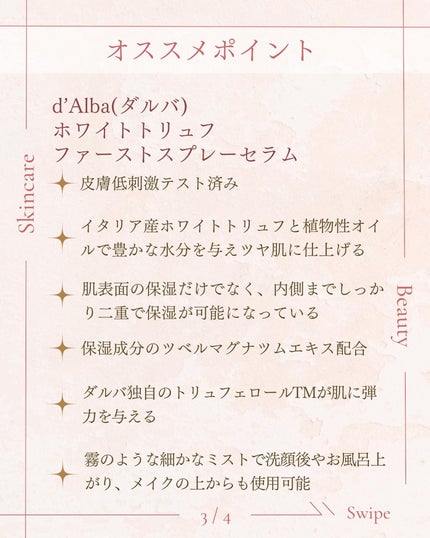 オススメポイント
d'Alba(ダルバ)
ホワイトトリュフ
ファーストスプレーセラム
皮膚低刺激テスト済み
イタリア産ホワイトトリュフと植物性オイ
ルで豊かな水分を与えツヤ肌に仕上げる
肌表面の保湿だけでなく、内側までしっか
り二重で保湿が可能になっている
保湿成分のツベルマグナツムエキス配合
ダルバ独自のトリュフェロールTMが肌に弾
力を与える
霧のような細かなミストで洗顔後やお風呂上
がり、メイクの上からも使用可能
Skincare
Beauty
3/4
Swipe